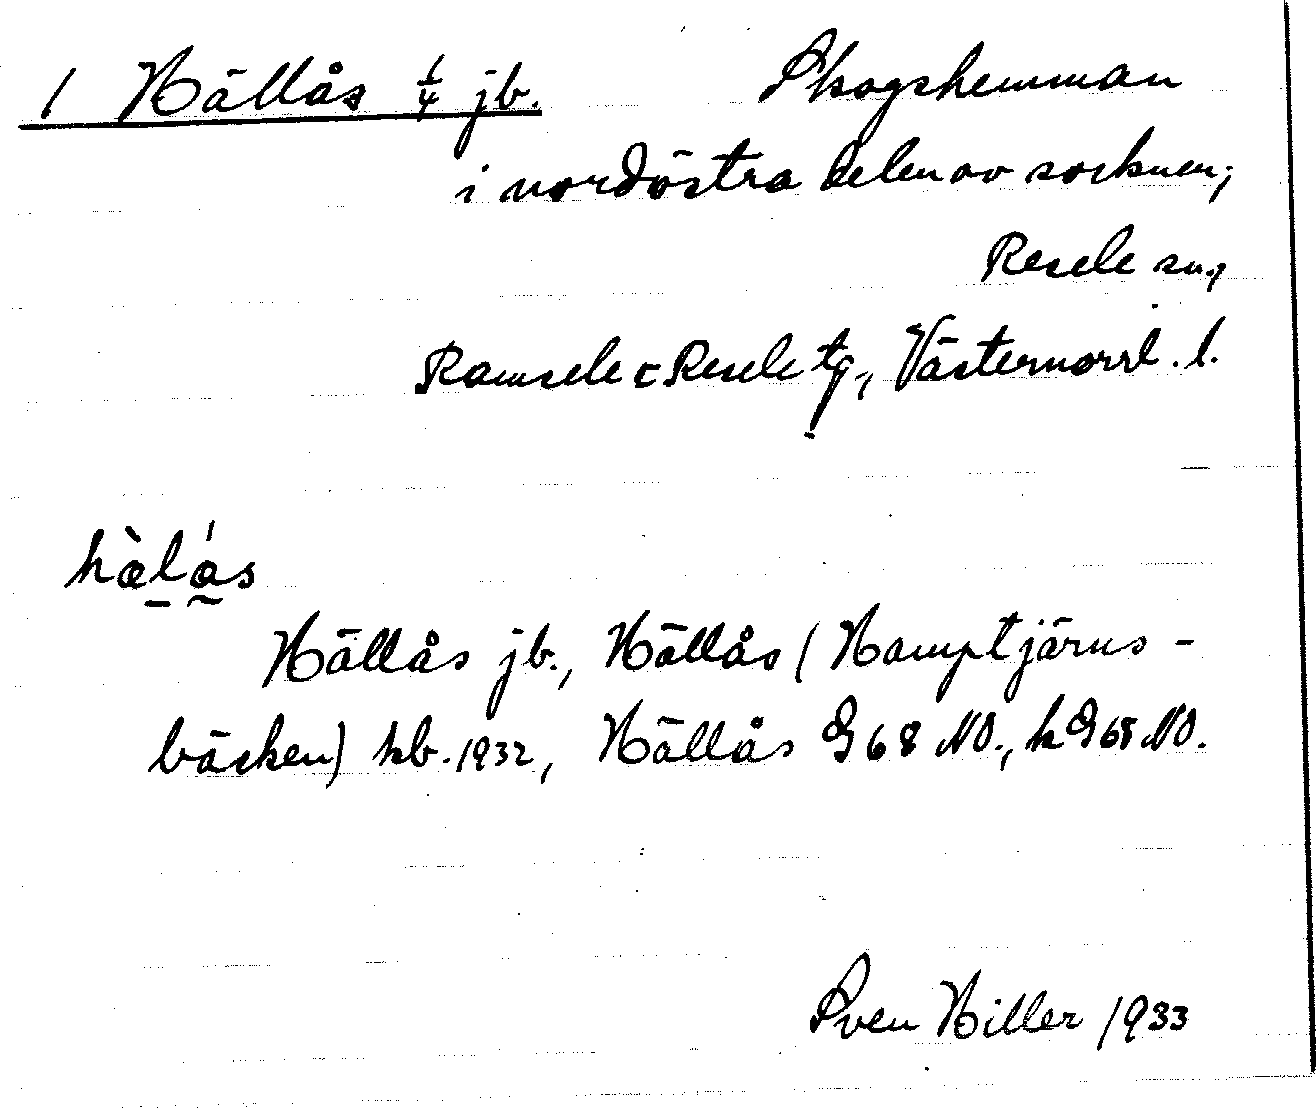 1 Hällås 1/4 jb. Skogshemman
i nordöstra delen av socknen;
Resele sn.,
Ramsele o Resele tg., Västernorrl. l.
hæ̀lás
Hällås jb., Hällås (Hamptjärns-
bäcken) kb. 1932, Hällås G68 NO., kG68 NO.
Sven Hiller 1933